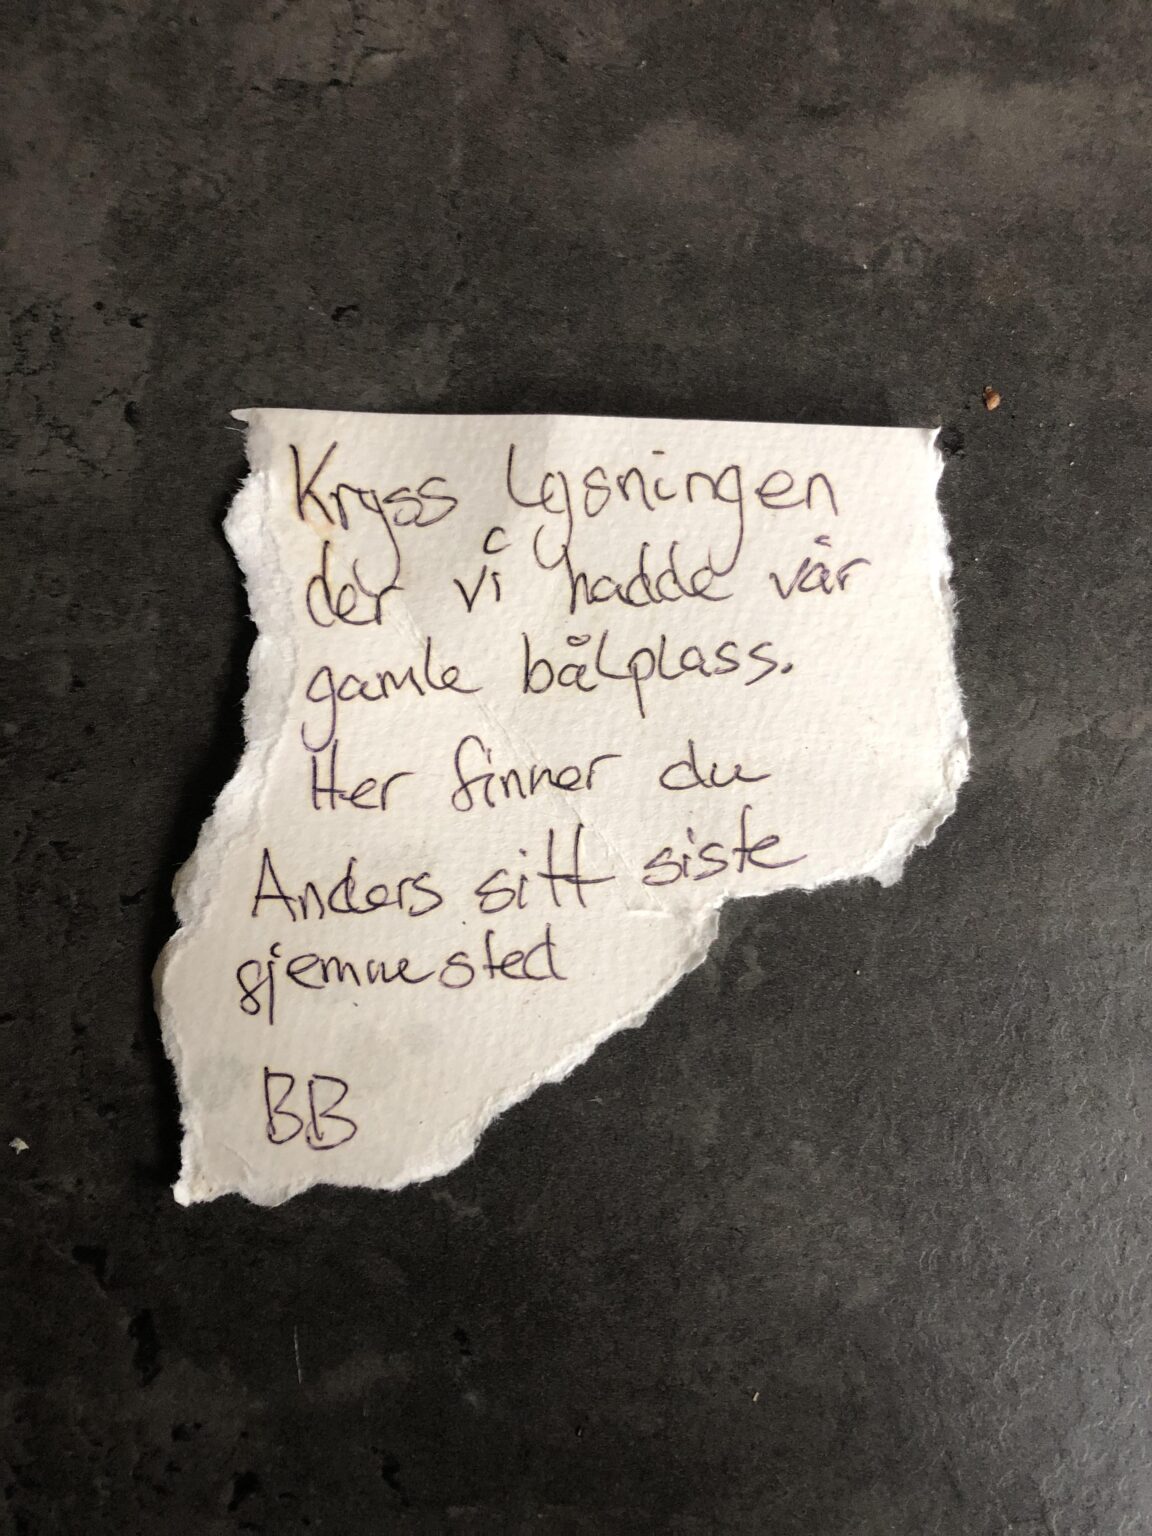 Kryss lysningen
der vi hadde vår
gamle bålplass.
Her finner du
Anders sitt siste
gjemmested
BB